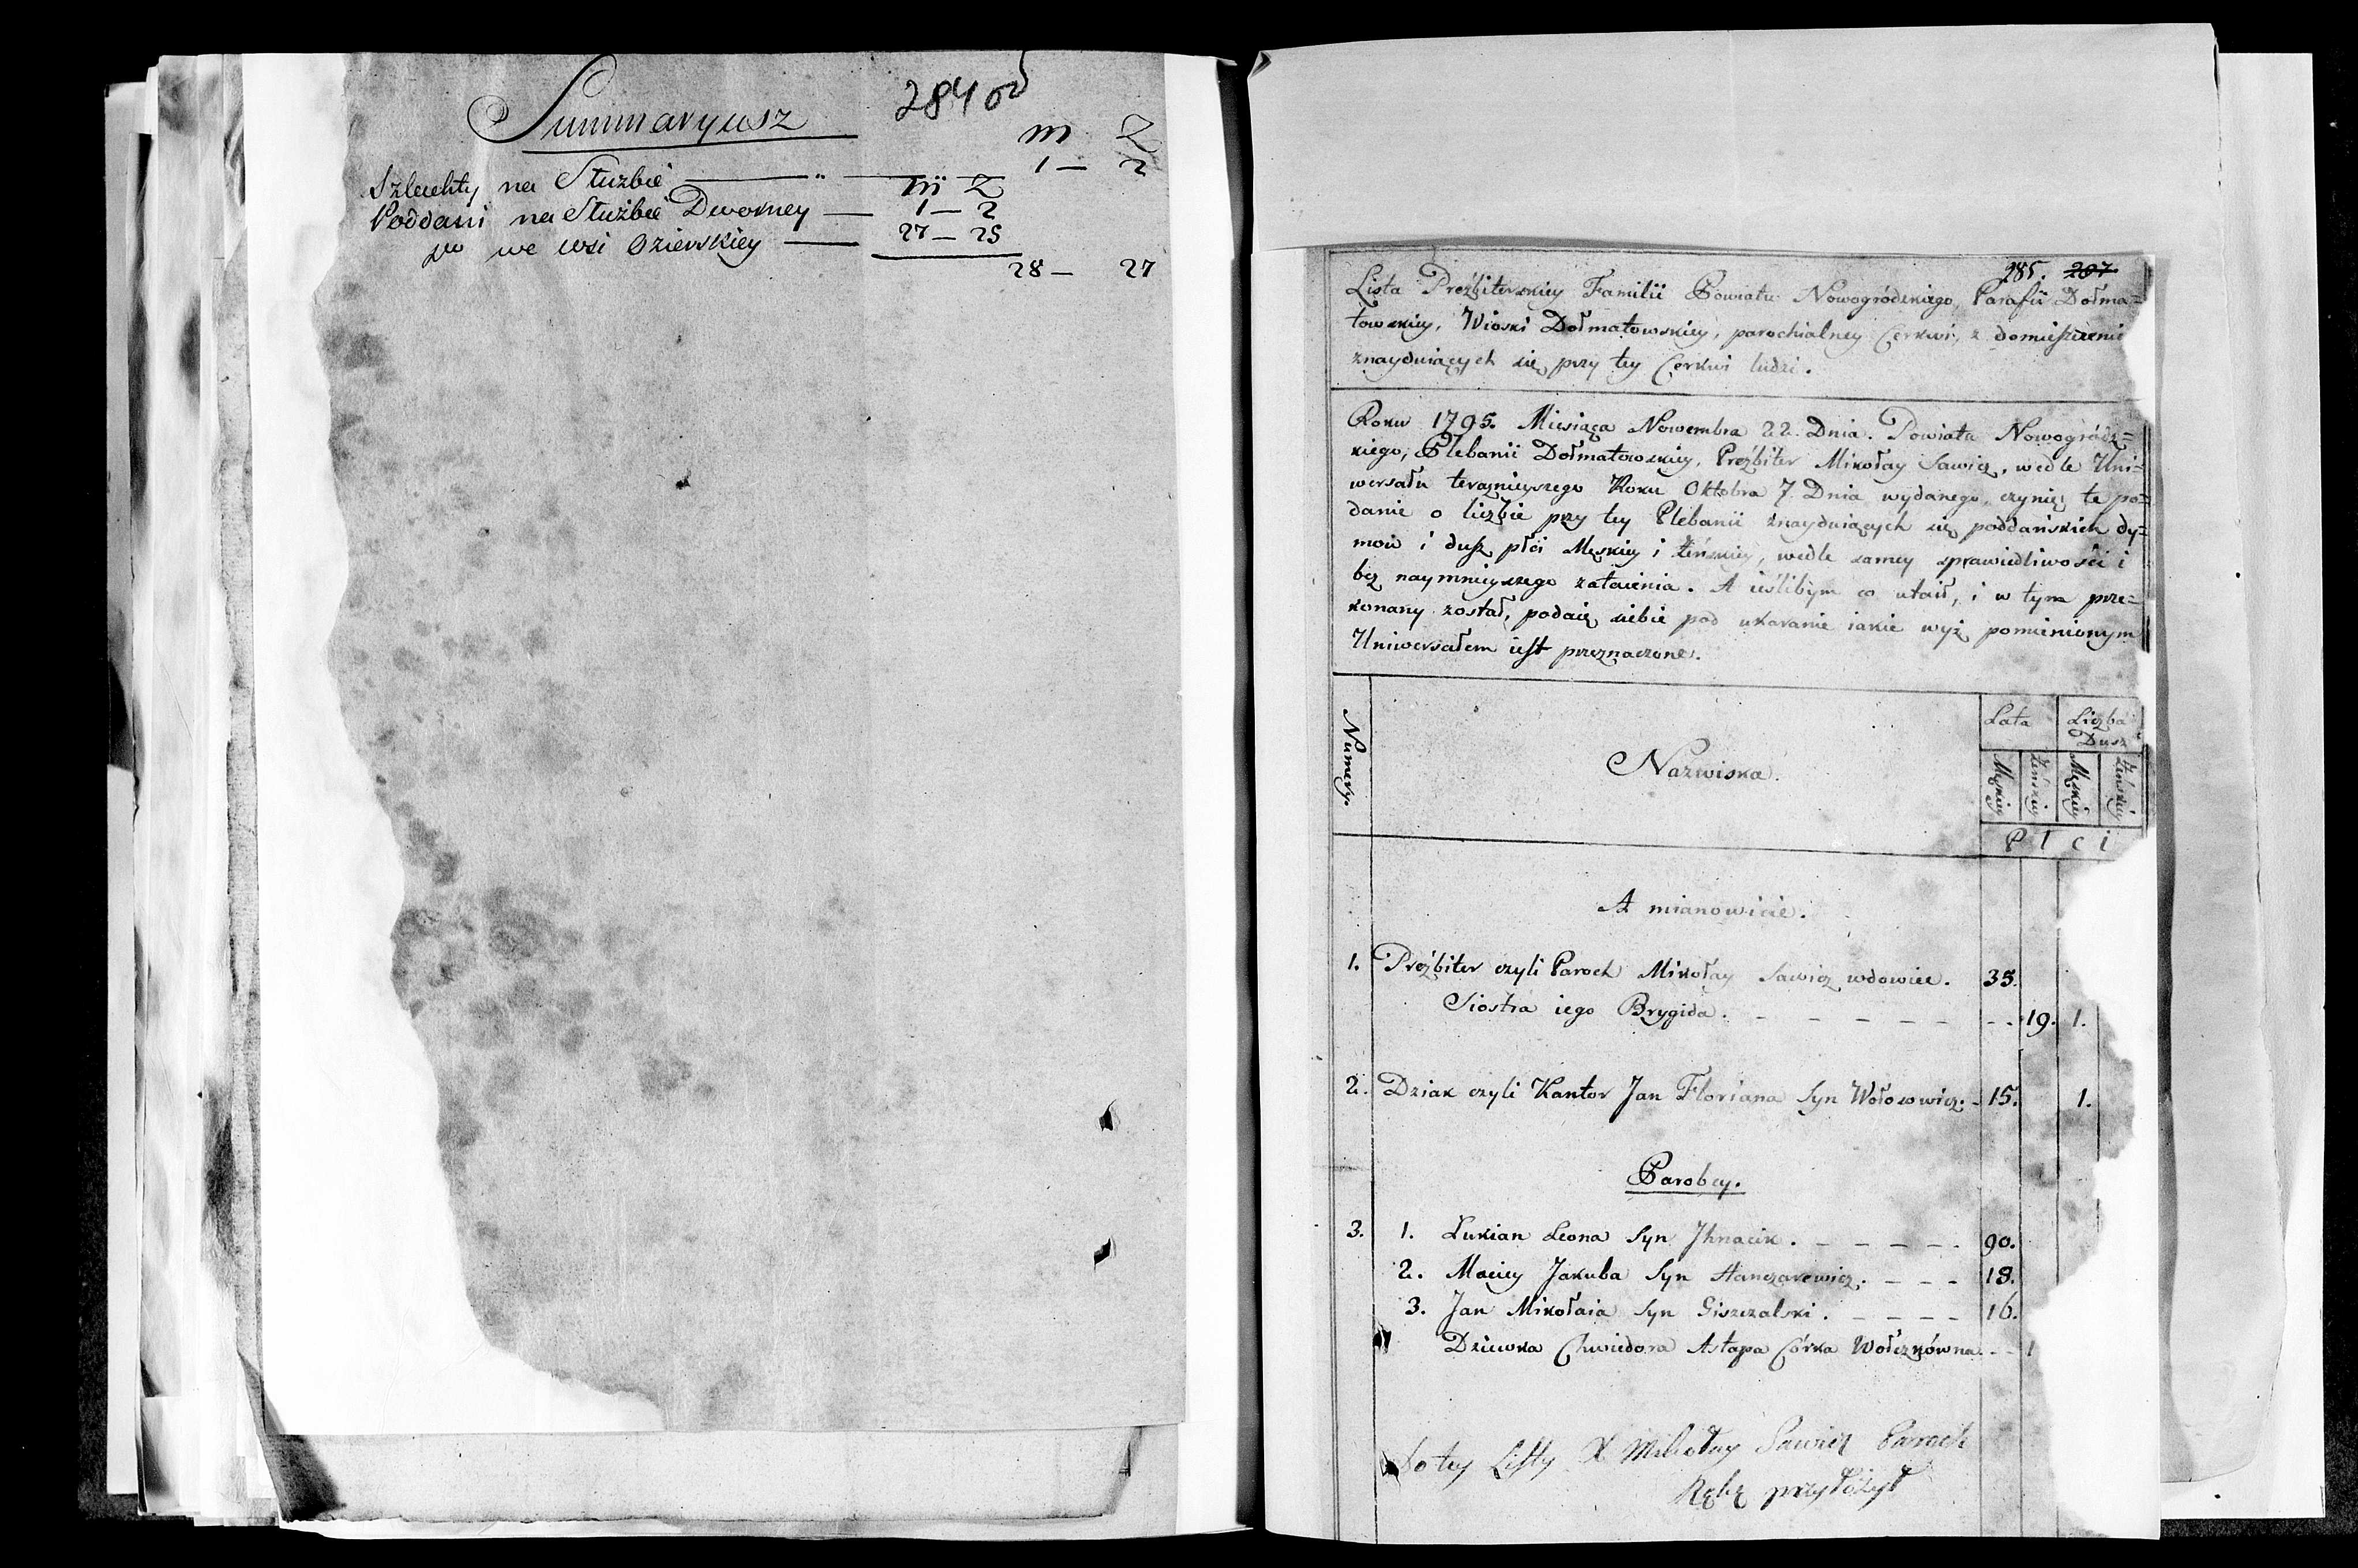 Summaryusz
284 od
m Z
Szlachty na Służbie — „ — 1 — 2
m Z
Poddani na Służbie Dworney — 1 — 2
we wsi Ozierskiey — 27 — 25
28 — 27
285. 207
Lista Prezbiterskiey Familii Powiatu Nowogródzkiego, Parafii Dołma=
towskiey, Wioski Dołmatowskiey, parochialney Cerkwi, z domieszczenie
znayduiących się przy tey Cerkwi ludzi.
Roku 1795. Miesiąca Nowembra 22. Dnia. Powiatu Nowogródz=
kiego, Plebanii Dołmatowskiey, Prezbiter Mikołay Sawicz, wedle Uni=
wersału teraznieyszego Roku Oktobra 7 Dnia wydanego, czynię te po=
danie o liczbie przy tey Plebanii znayduiących się poddańskich dy=
mow i dusz płci Męskiey i żeńskiey, wedle samey sprawiedliwości i
bez naymnieyszego zataienia. A ieślibym co utaił, i w tym prze=
konany został, podaię siebie pod ukaranie iakie wyż pomienionym
Uniwersałem iest przeznaczone.
Numery.
Nazwiska.
Lata
Liczba Dusz
Męskiey
Żeńskiey
Męskiey
Żeńskiey
P l c i
A mianowicie.
1. Prezbiter czyli Paroch Mikołay Sawicz wdowiec. 35.
Siostra iego Brygida. - - - - - - - - 19. 1.
2. Dziak czyli Kantor Jan Floriana Syn Wołosowicz. - 15. 1.
Parobcy.
3. 1. Łukian Leona Syn Ihnacik. - - - - - 90.
2. Maciey Jakuba Syn Hanczarewicz. - - - 18.
3. Jan Mikołaia Syn Giszczalski. - - - - 16.
Dziewka Chwiedora Astapa Córka Wołczkówna - - 1
Do tey Listy X Mikołay Sawicz Paroch
Rękę przyłożył